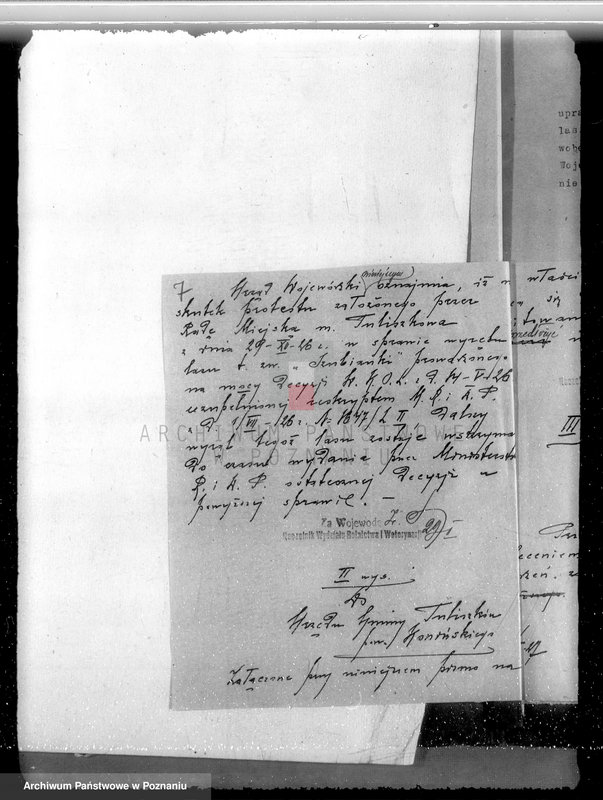 upra
las
wobe
Woje
nie
7
niniejszem
Urząd Wojewódzki oznajmia, iż w
skutek protestu założonego przez
Radę Miejską m. Tuliszkowa
z dnia 29-XI-26 r. w sprawie wyrębu
lasu t. zw. „ prowadzonego
na mocy Decyzji K. O. Z. z d. 14-V-126
uzupełnionej reskryptem M. R. i D. P.
z d. VII-126 r. № 1847/L II Dalszy
wyrąb tegoż lasu zostaje wstrzyma
do czasu wydania przez Ministerstw
R. i D. P. ostatecznej Decyzji w
powyższej sprawie. —
Za Wojewodę
Naczelnik Wydziału Rolnictwa i Weterynarji
29/I
II wys.
Do
Urzędu Gminy Tuliszków
pow. Konińskiego
Załączone przy niniejszem pismo na
właści
się
III
ARCHIWUM PAŃSTWOWE
W POZNANIU
Archiwum Państwowe w Poznaniu